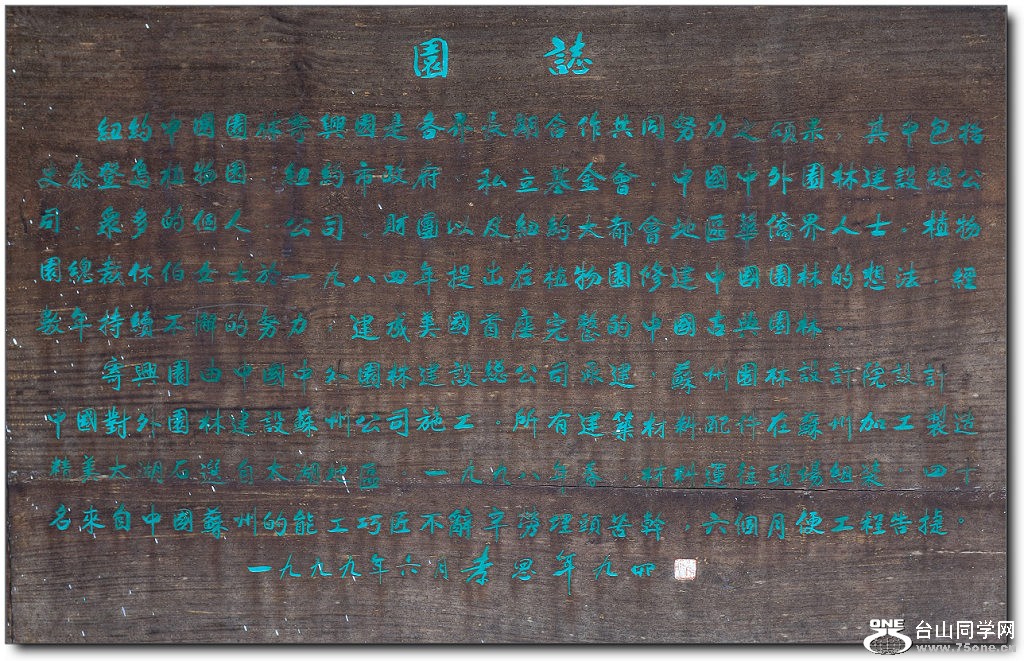 園 誌
紐約中國園林寄興園是各界長期合作共同努力之碩果。其中包括
史泰登島植物園、紐約市政府、私立基金會、中國中外園林建設總公
司、衆多的個人、公司、財團以及紐約大都會地區華僑界人士。植物
園總裁休伯女士於一九八四年提出在植物園修建中國園林的想法。經
數年持續不懈的努力，建成美國首座完整的中國古典園林。
寄興園由中國中外園林建設總公司承建，蘇州園林設計院設計
中國對外園林建設蘇州公司施工。所有建築材料配件在蘇州加工製造
精美太湖石選自太湖地區。一九九八年春，材料運往現場組裝。四十
名來自中國蘇州的能工巧匠不辭辛勞埋頭苦幹，六個月便工程告捷。
一九九九年六月 李思年九
ONE 台山同学网
www.75one.cn